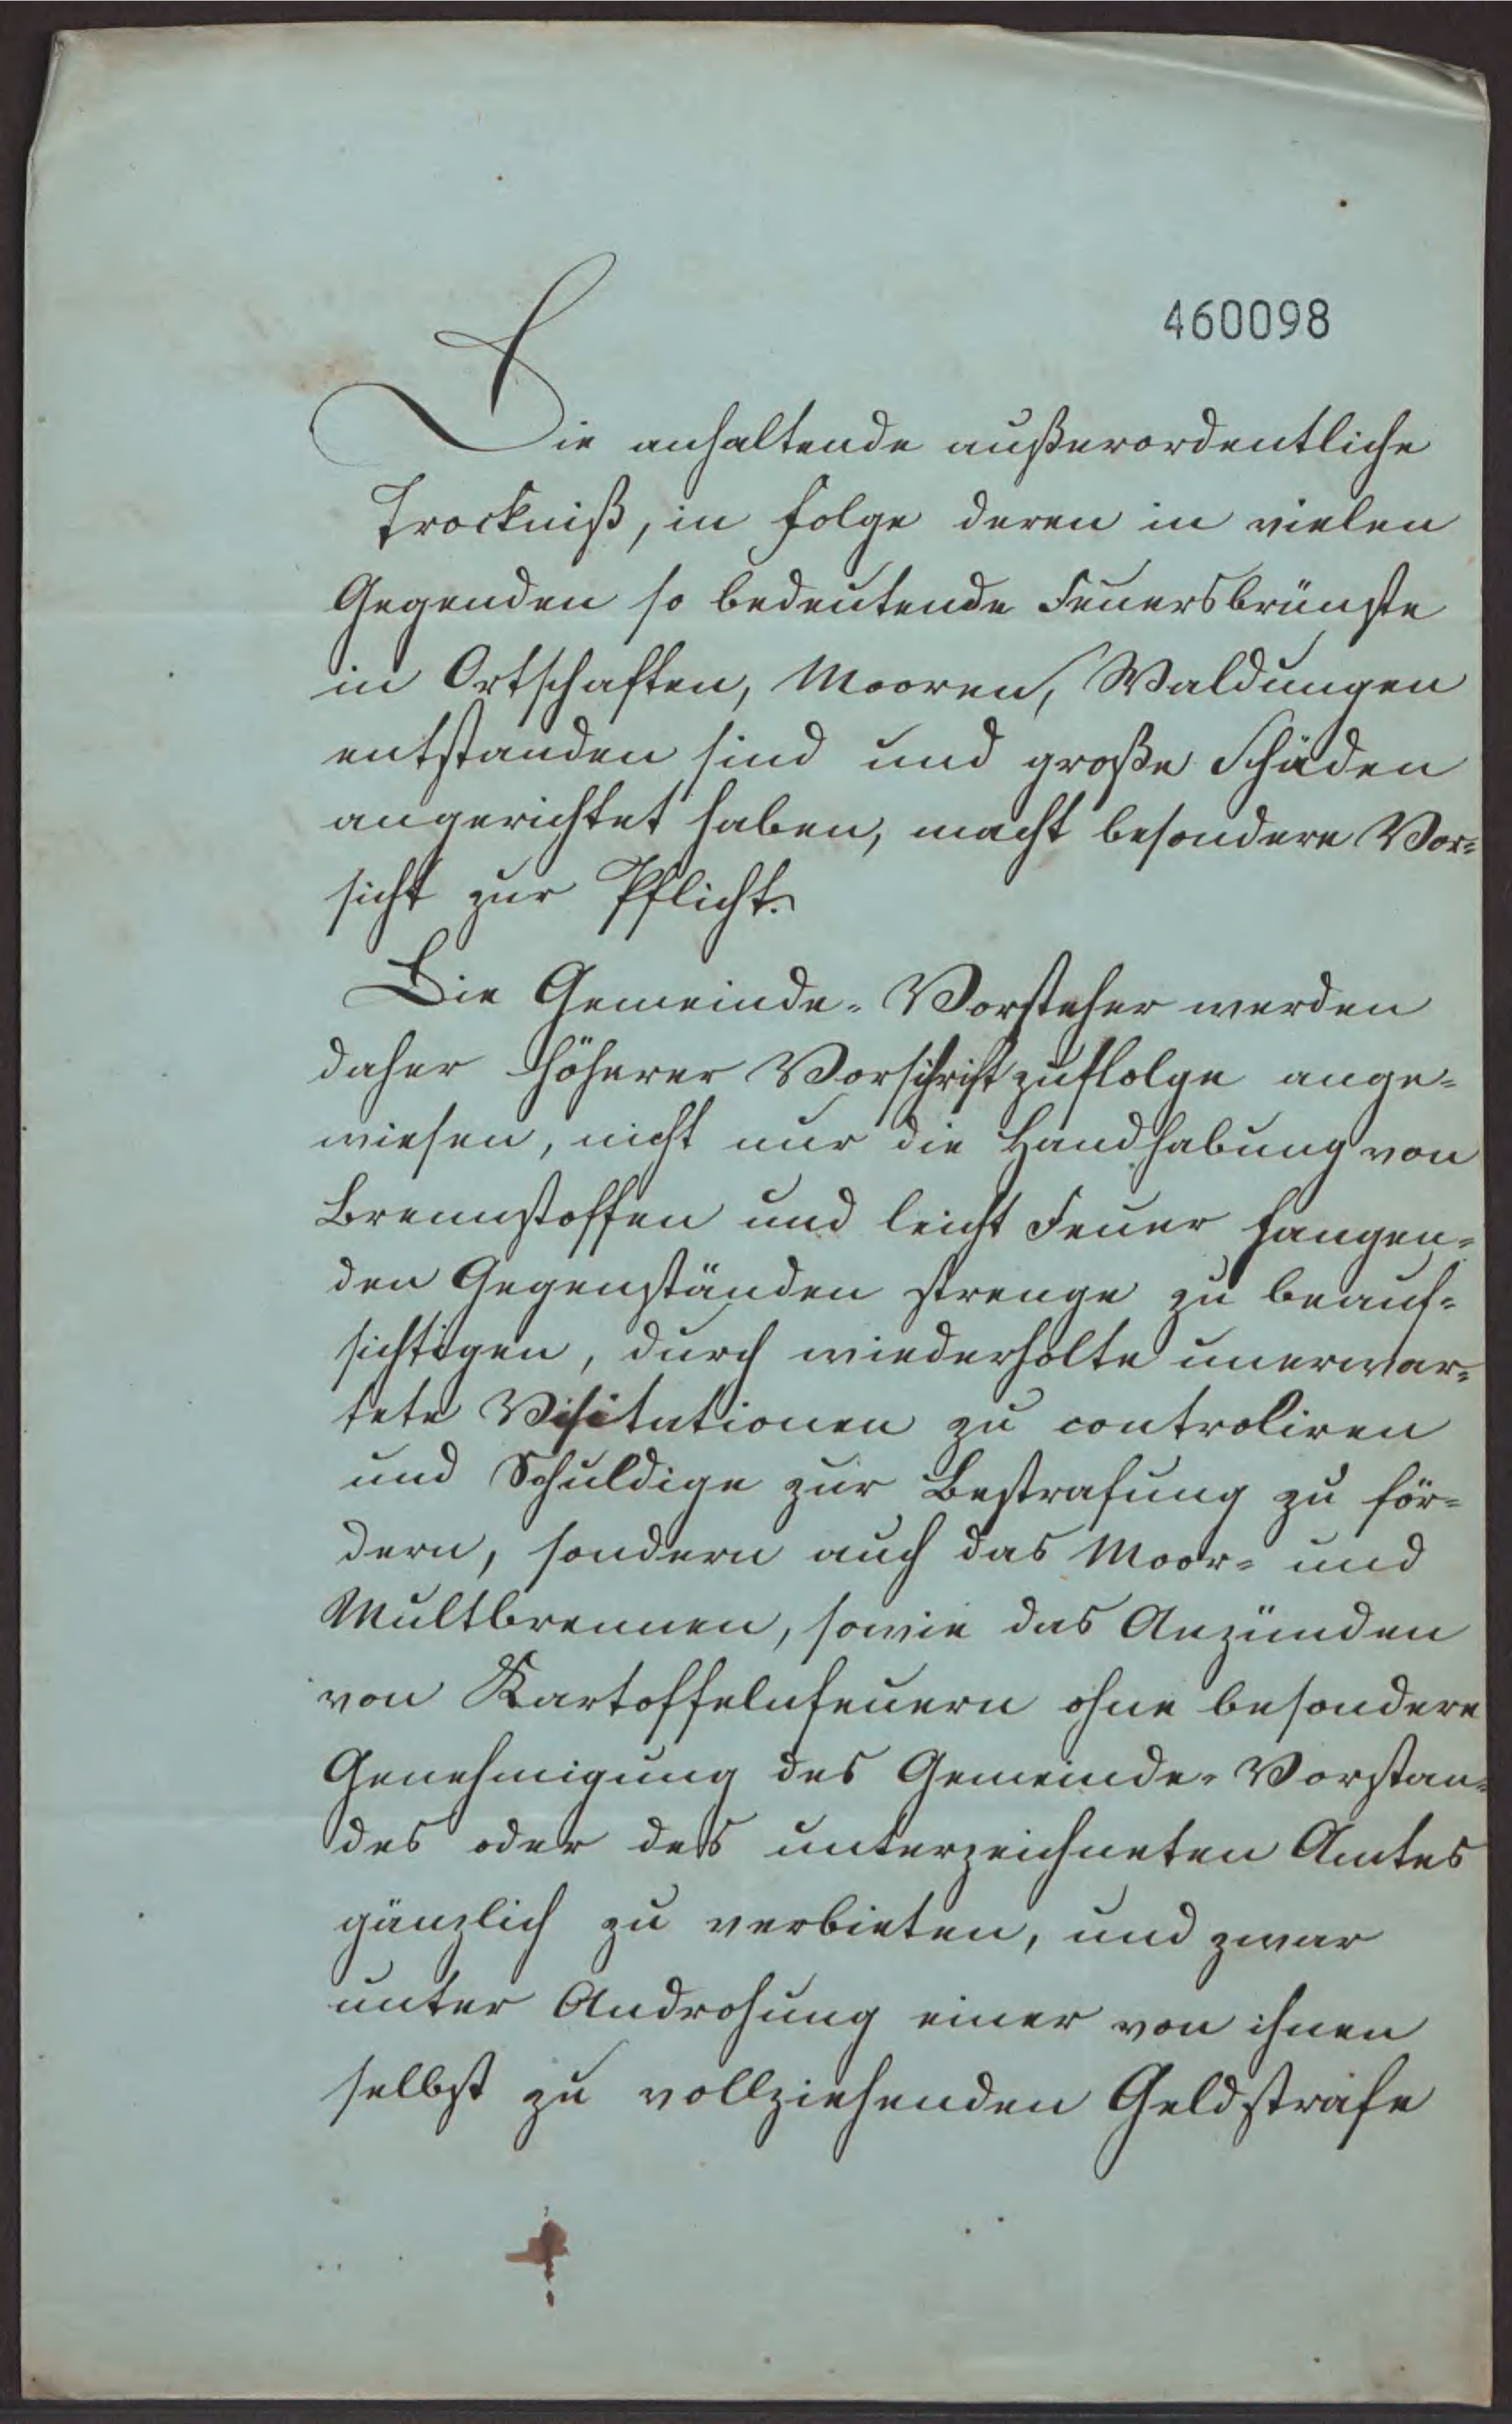 460098
Die anhaltende außerordentliche
Trockniß, in Folge deren in vielen
Gegenden so bedeutende Feuersbrünste
in Ortschaften, Mooren, Waldungen
entstanden sind und große Schäden
angerichtet haben, macht besondere Vor-
sicht zur Pflicht.
Die Gemeinde-Vorsteher werden
daher höherer Vorschrift zufolge ange-
wiesen, nicht nur die Handhabung von
Brennstoffen und leicht Feuer fangen-
den Gegenständen strenge zu beauf-
sichtigen, durch wiederholte unerwar-
tete Visitationen zu controliren
und Schuldige zur Bestrafung zu för-
dern, sondern auch das Moor- und
Multbrennen, sowie das Anzünden
von Kartoffelnfeuern ohne besondere
Genehmigung des Gemeinde-Vorstan-
des oder des unterzeichneten Amtes
gänzlich zu verbieten, und zwar
unter Androhung einer von ihnen
selbst zu vollziehenden Geldstrafe